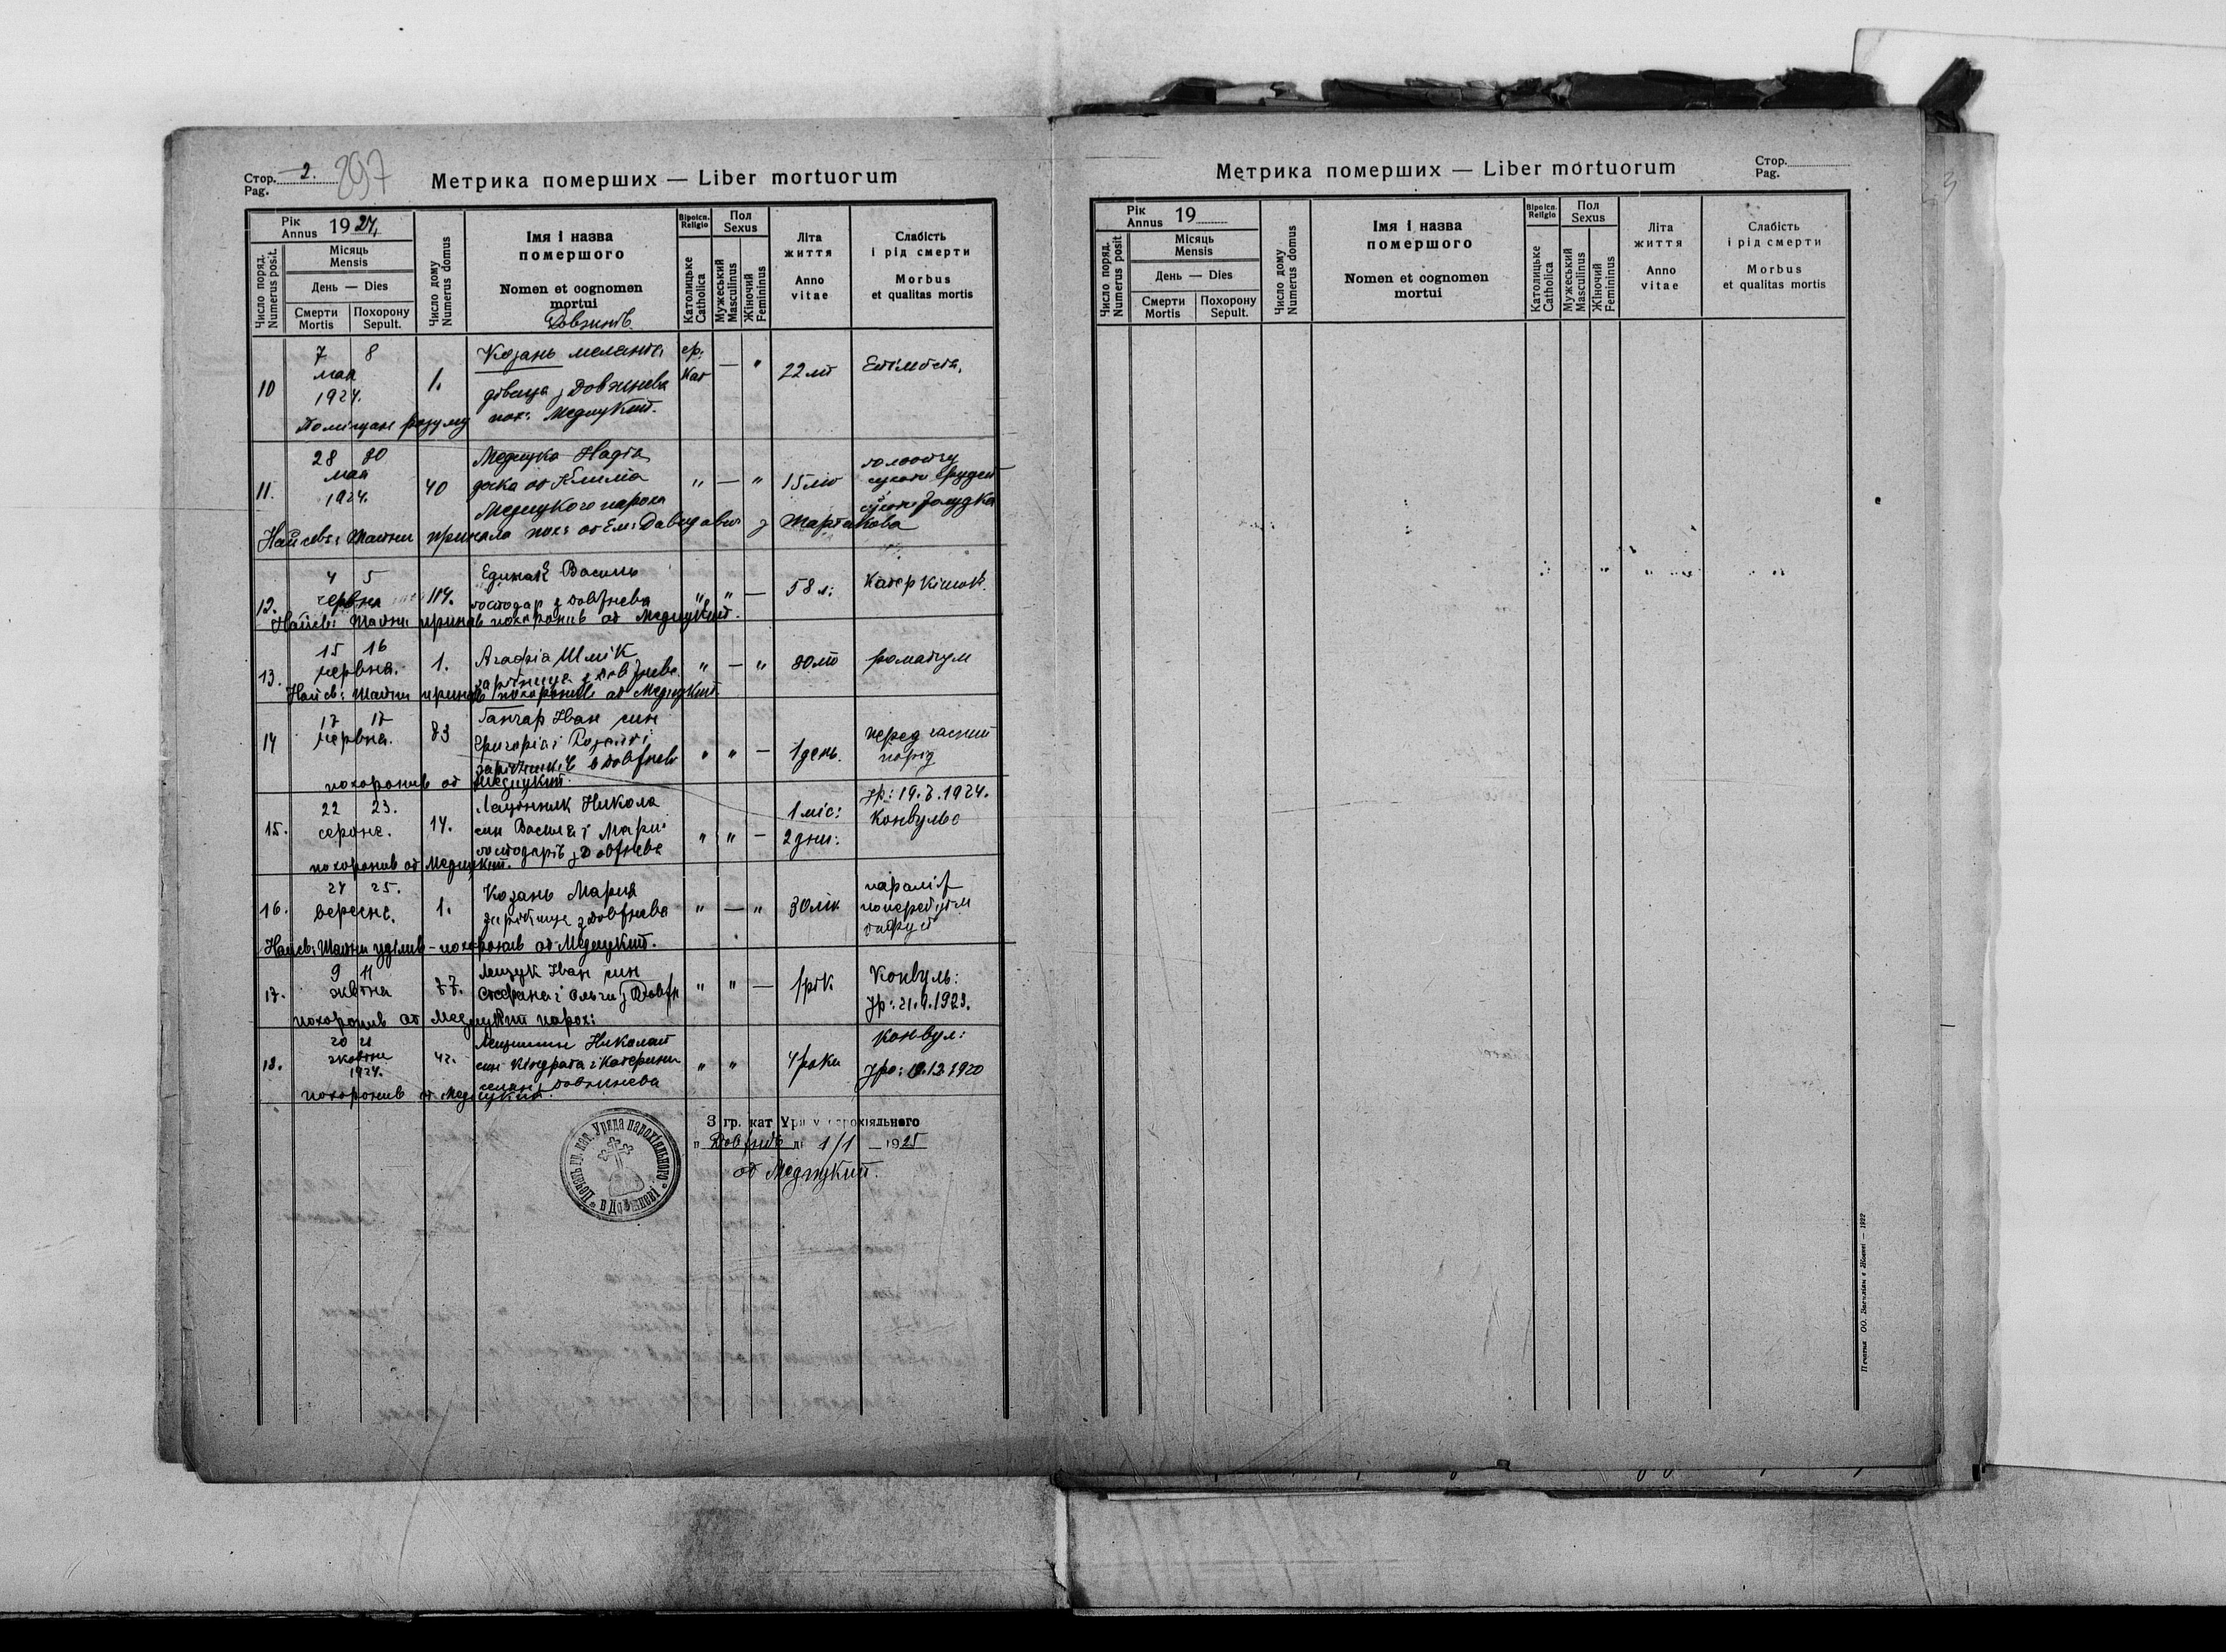 Стор. 2. 897
Pag.
Метрика померших — Liber mortuorum
Рік
Annus 1924
Число поряд.
Numerus posit.
Місяць
Mensis
День — Dies
Смерти
Mortis
Похорону
Sepult.
Число дому
Numerus domus
Імя і назва
помершого
Nomen et cognomen
mortui
Довжнів
Віроісп.
Religio
Католицьке
Catholica
Пол
Sexus
Мужеський
Masculinus
Жіночий
Femininus
Літа
життя
Anno
vitae
Слабість
і рід смерти
Morbus
et qualitas mortis
10 7 8 мая 1924. 1. Козань Меланія гр. Кат — " 22 літ
дівиця з Довжнева
пох: Медицкий.
11. 28 30 мая 1924. 40 Медицка Надія " — " 15 літ
дочка оt Клима
Медицкого пароха
Найсвь: Тайни приняла пох: от Ем: Давидович з Тартакова
12. 4 5 червня 114. Единак Василь " " — 58 л: Катар Кішок
господар з Довжнева
Найсв: Тайни приняв похоронив от Медицкий.
13. 15 16 червня. 1. Агафія Шмік " — " 80 літ
зарібниця з Довжнева
Найсв: Тайни приняв похоронив от Медицкий
14 17 17 червня. 83 Ганчар Іван син " " — 1 день. перед часний
Григорія і Розалії порід
зарібників в Довжневі
похоронив от Медицкий.
15. 22 23. серпня. 14. Никола " " — 1 міс: 2 дни: ур: 19.7.1924.
син Василя і Марії Конвульс
господарів з Довжнева
похоронив от Медицкий.
16. 24 25. вересня. 1. Козань Мария " — " 30 літ параліж
зарібниця з Довжнева
Найсв: Тайни уділив - похоронив от Медицкий.
17. 9 11 жовтня 77. Мащук Іван син " " — 1 рік Конвуль:
Стефана і Ольги з Довжн ур: 21.9.1923.
похоронив от Медицкий парох:
18. 20 21 жовтня 1924. 42. Николай " " 4 роки конвул:
син Кіндрата і Катерини уро: 19.12.1920
селян Довжнева
похоронив от Медицкий.
З гр. кат. Уряду парохіяльного
в Довжневі дн 1/1 — 1925
от Медицкий.
Печать гр. кат. Уряда парохіяльного в Довжневі
Метрика померших — Liber mortuorum
Стор.
Pag.
Рік
Annus 19
Число поряд.
Numerus posit
Місяць
Mensis
День — Dies
Смерти
Mortis
Похорону
Sepult.
Число дому
Numerus domus
Імя і назва
помершого
Nomen et cognomen
mortui
Віроісп.
Religio
Католицьке
Catholica
Пол
Sexus
Мужеський
Masculinus
Жіночий
Femininus
Літа
життя
Anno
vitae
Слабість
і рід смерти
Morbus
et qualitas mortis
Печатня ОО. Василіян в Жовкві — 1922